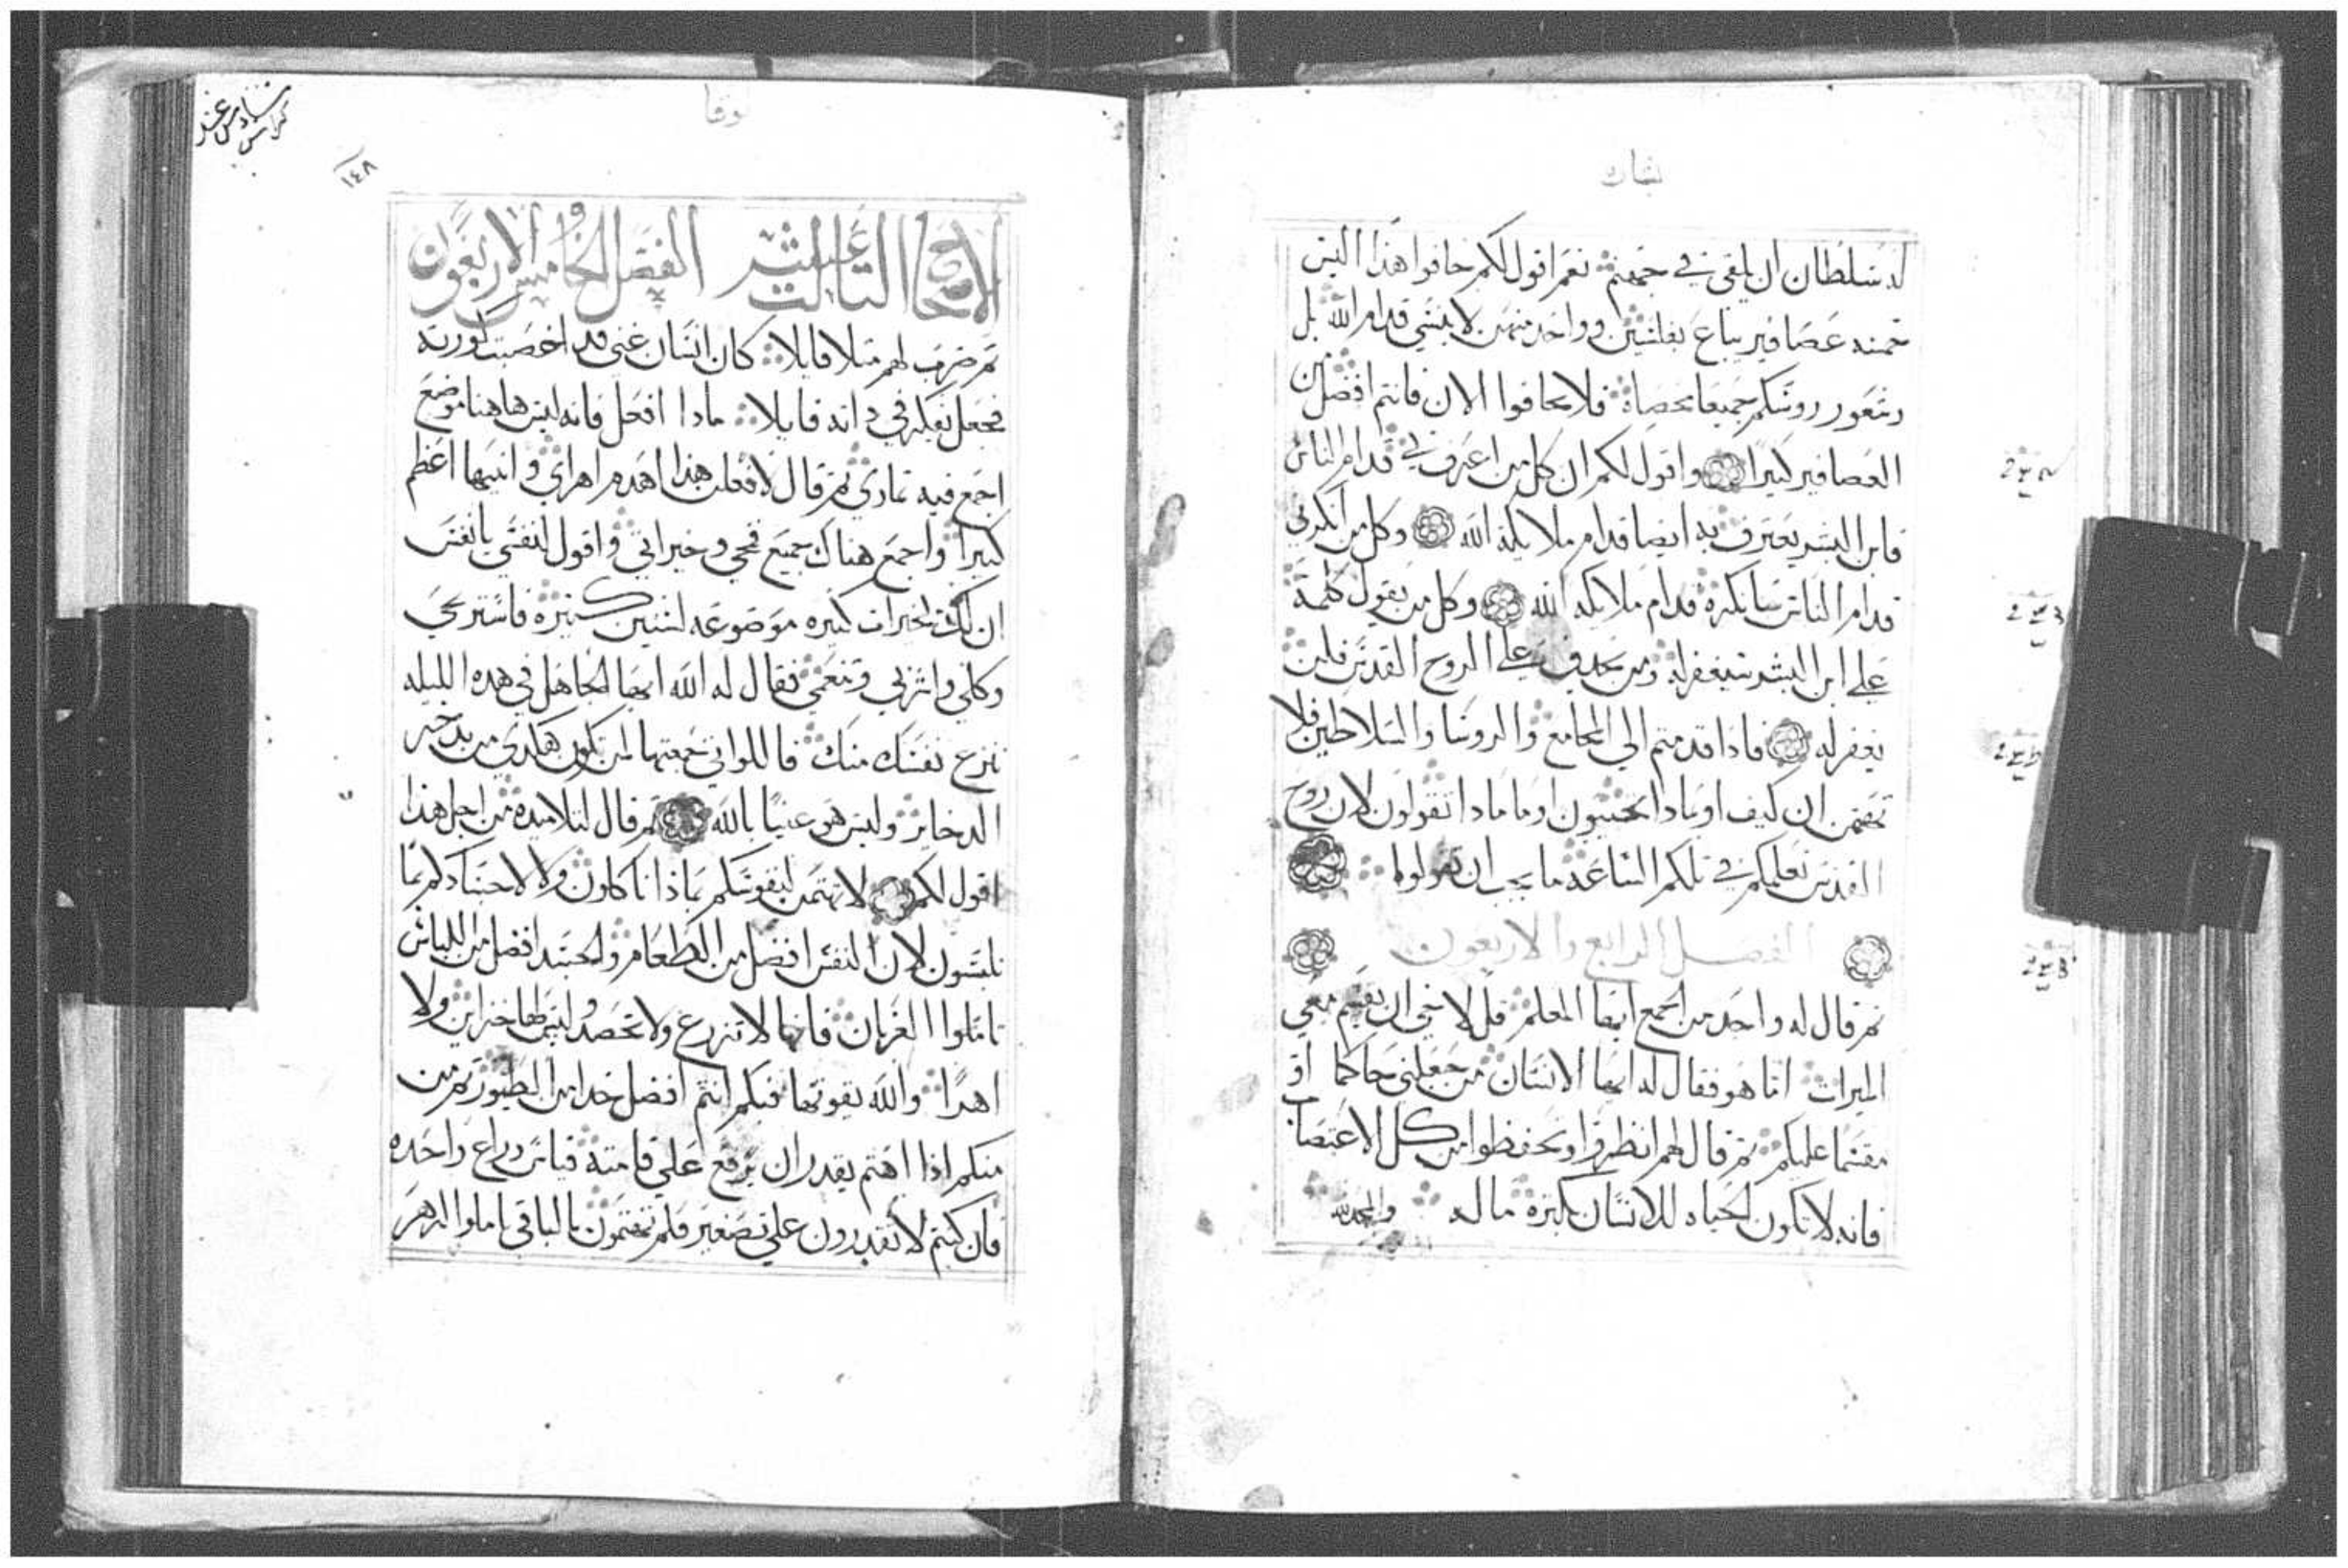 بشارة
له سلطان ان يلقي في جهنم نعم اقول لكم خافوا هذا اليس
خمسه عصافير يباع بفلسين وواحد منهن لا ينسي قدام الله بل
وشعور روسكم جميعا محصاه فلا تخافوا الان فانتم افضل من
العصافير كثيرا واقول لكم ان كل من اعترف بي قدام الناس
فابن البشر يعترف به ايضا قدام ملايكة الله وكل من انكرني
قدام الناس سانكره قدام ملايكه الله وكل من يقول كلمة
علي ابن البشر سيغفر له ومن يجدف علي الروح القدس فلن
يغفر له فاذا قدمتم الي المجامع والروسا والسلاطين فلا
تهتمن ان كيف او بماذا تحتجون او ما ماذا تقولون لان روح
القدس تعلمكم في تلكم الساعة ما يجب ان تقولوا
الفصل الرابع والاربعون
ثم قال له واحد من الجمع ايها المعلم قل لاخي ان يقسم معي
الميراث اما هو فقال له ايها الانسان من جعلني حاكما او
مقسما عليكم ثم قال لهم انظروا وتحفظوا من كل الاغتصاب
فانه لا تكون الحياه للانسان بكثرة ماله والمجد لله
لوقا
١٤٨
الاصحاح الثالث عشر الفصل الخامس والاربعون
ثم ضرب لهم مثلا قايلا كان انسان غني قد اخصبت كورته
فجعل يفكر في ذاته قايلا ماذا افعل فانه ليس هاهنا موضع
اجمع فيه ثماري ثم قال لافعلن هذا اهدم اهراي وابنيها اعظم
كثيرا واجمع هناك جميع قمحي وخيراتي واقول لنفسي يا نفس
ان لك خيرات كثيره موضوعه لسنين كثيره فاستريحي
وكلي واشربي وتنعمي فقال له الله ايها الجاهل في هذه الليله
تنزع نفسك منك فاللواتي جمعتها لمن تكون هكذي من يدخر
الدخاير وليس هو غنيا بالله ثم قال لتلاميذه من اجل هذا
اقول لكم لا تهتمن لنفوسكم بماذا تاكلون ولا لاجسادكم بما
تلبسون لان النفس افضل من الطعام والجسد افضل من اللباس
تاملوا الغربان فانها لا تزرع ولا تحصد وليس لها خزاين ولا
اهرا والله يقوتها فبكم انتم افضل من الطيور ثم من
منكم اذا اهتم يقدر ان يرفع علي قامته قياس ذراع واحده
فان كنتم لا تقدرون علي صغير فلم تهتمون بالباقي تاملوا الزهر